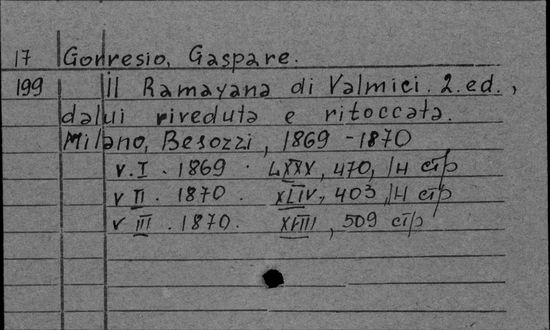 17 Gorresio, Gaspare.
199 Il Ramayana di Valmici. 2. ed.,
dalui riveduta e ritoccata.
Milano, Besozzi, 1869 - 1870
v. I. 1869. LXXV, 470, 1н стр
v II. 1870. XLIV, 403, 1н стр
v III. 1870. XVIII, 509 стр